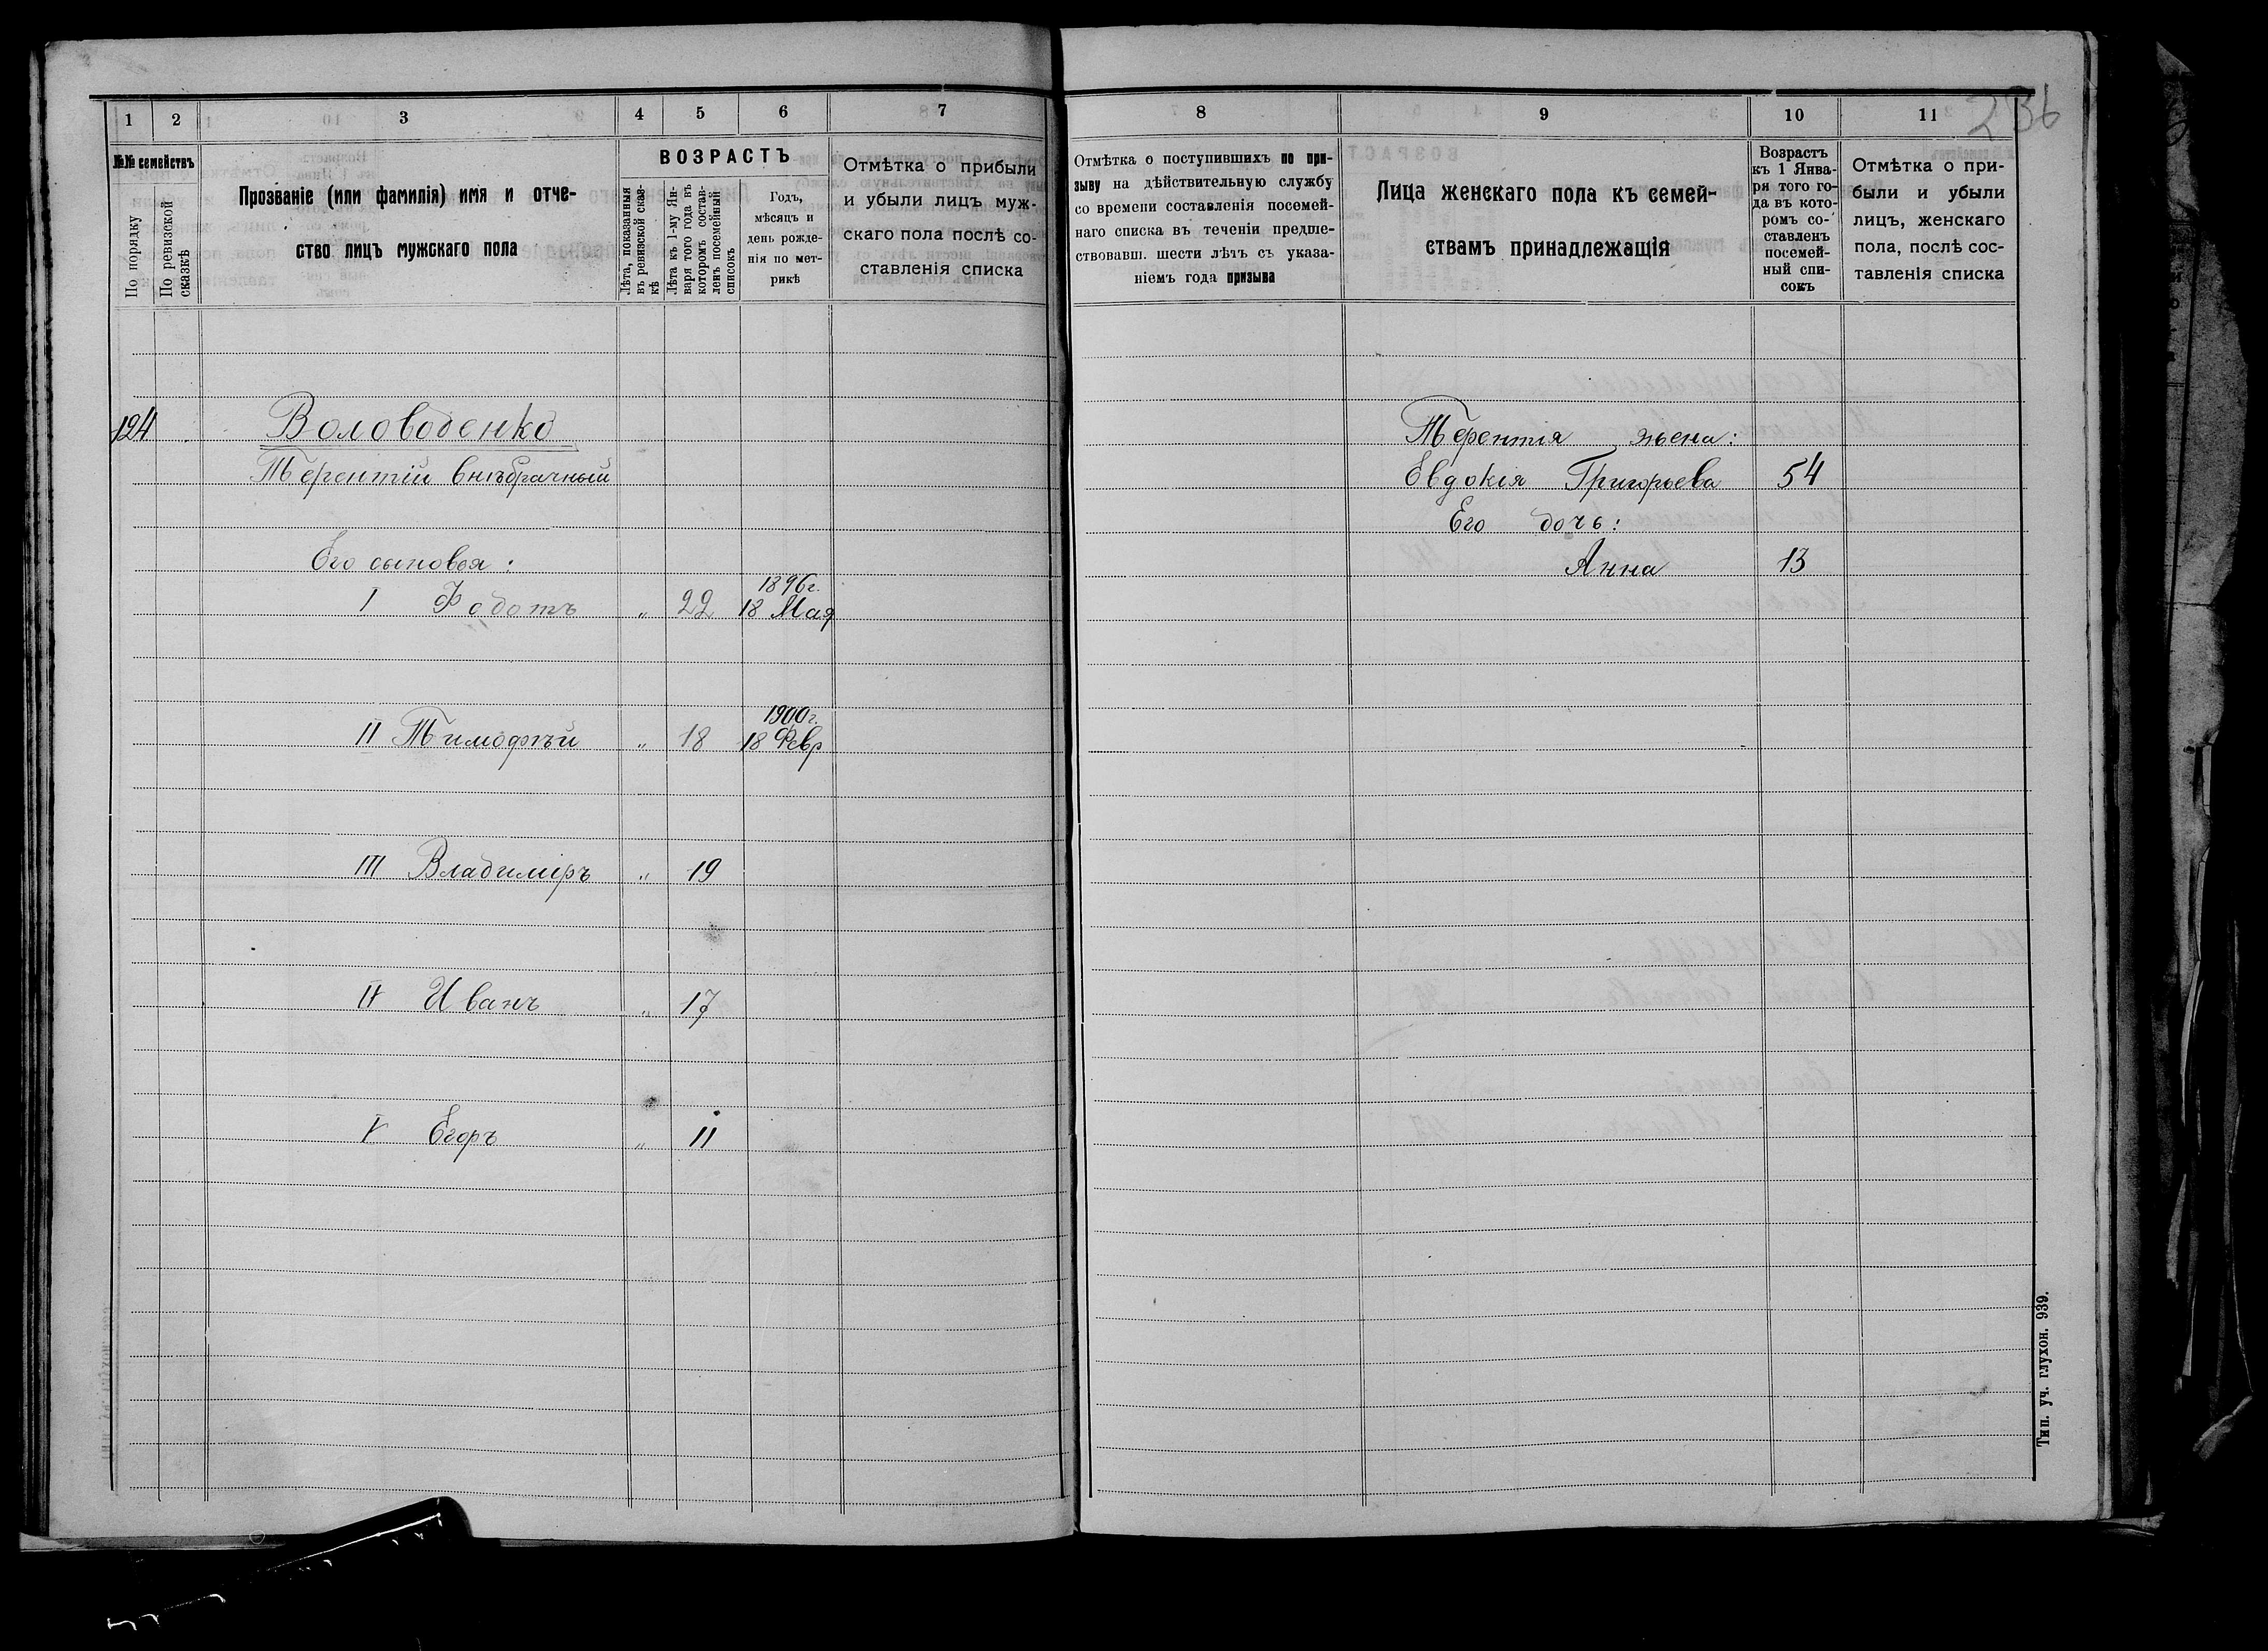 236
1
2
3
4
5
6
7
№№ семействъ
По порядку
По ревизской сказкѣ
Прозваніе (или фамилія) имя и отче-
ство лицъ мужскаго пола
ВОЗРАСТЪ
Лѣта, показанныя
въ ревизской сказ-
кѣ
Лѣта къ 1-му Ян-
варя того года въ
которомъ состав-
ленъ посемейный
списокъ
Годъ,
мѣсяцъ и
день рожде-
нія по мет-
рикѣ
Отмѣтка о прибыли
и убыли лицъ муж-
скаго пола послѣ со-
ставленія списка
124
Воловоденко
Терентій внѣбрачный
Его сыновья:
1896г.
I Федотъ " 22 18 Мая
1900г.
II Тимофѣй " 18 18 Февр
III Владиміръ " 19
IV Иванъ " 17
V Егоръ " 11
8
9
10
11
Отмѣтка о поступившихъ по при-
зыву на дѣйствительную службу
со времени составленія посемей-
наго списка въ теченіи предше-
ствовавш. шести лѣтъ съ указа-
ніемъ года призыва
Лица женскаго пола къ семей-
ствамъ принадлежащія
Возрастъ
къ 1 Янва-
ря того го-
да въ кото-
ромъ со-
ставленъ
посемей-
ный спи-
сокъ
Отмѣтка о при-
были и убыли
лицъ, женскаго
пола, послѣ сос-
тавленія списка
Терентія жена:
Евдокія Григорьева 54
Его дочь:
Анна 13
Тип. уч. глухон. 939.